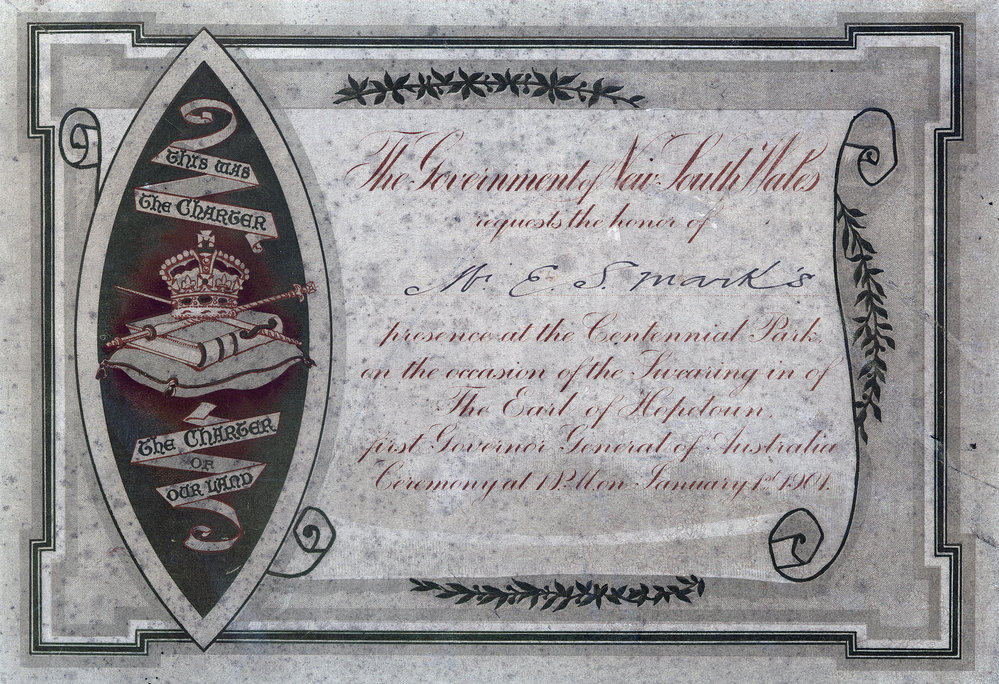 THIS WAS
THE CHARTER
THE CHARTER
OF
OUR LAND
The Government of New South Wales
requests the honor of
Mr E. S. Mark's
presence at the Centennial Park
on the occasion of the Swearing in of
The Earl of Hopetoun,
first Governor General of Australia
Ceremony at 1 P.M on January 1st 1901.